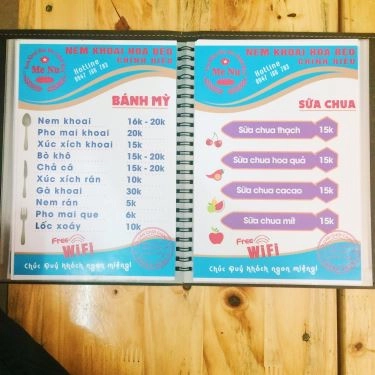 NEM KHOAI HOA BÉO
CHÍNH HIỆU
Hotline
Me Nu
BÁNH MỲ
Nem khoai 16k - 20k
Pho mai khoai 20k
Xúc xích khoai 15k
Bò khô 15k - 20k
Chả cá 15k - 20k
Xúc xích rán 10k
Gà khoai 30k
Nem rán 5k
Pho mai que 6k
Lốc xoáy 10k
Free
WiFi
Chúc Quý khách ngon miệng!
NEM KHOAI HOA BÉO
CHÍNH HIỆU
Hotline
Me Nu
SỮA CHUA
Sữa chua thạch 15k
Sữa chua hoa quả 15k
Sữa chua cacao 15k
Sữa chua mít 15k
Free
WiFi
Chúc Quý khách ngon miệng!